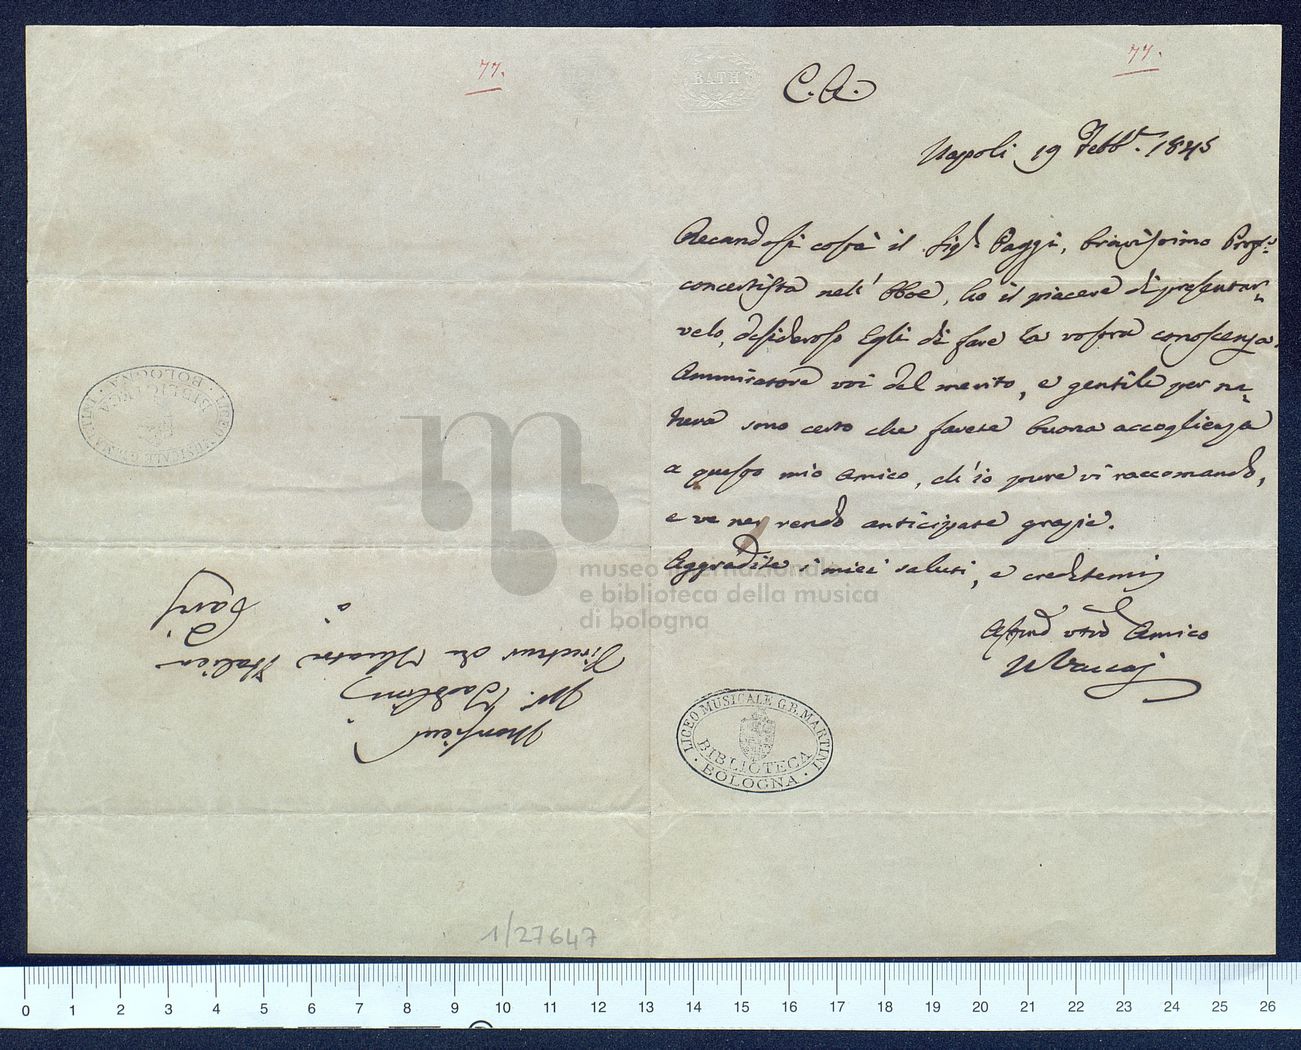 77.
77.
BATH
C. A.
Napoli 19 Febb.º 1845
Recandosi costà il Sigr. Paggi, bravissimo Prof.e
concertista nell'Oboe, ho il piacere di presentar-
velo, desideroso Egli di fare la vostra conoscenza.
Ammiratore voi del merito, e gentile per na-
tura sono certo che farete buona accoglienza
a questo mio amico, ch'io pure vi raccomando,
e ve ne rendo anticipate grazie.
Aggradite i miei saluti, e credetemi
Affmo vtro Amico
NVaccaj
Monsieur
Directeur du Théatre Italien
a
Paris
LICEO MUSICALE G.B. MARTINI
BIBLIOTECA
BOLOGNA
LICEO MUSICALE G.B. MARTINI
BIBLIOTECA
BOLOGNA
museo internazionale
e biblioteca della musica
di bologna
1/27647
0 1 2 3 4 5 6 7 8 9 10 11 12 13 14 15 16 17 18 19 20 21 22 23 24 25 26